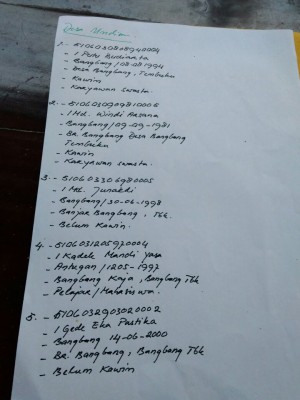 Desa
1. - 5106030808940004
- I Putu Budianta
- Bangbang / 08-08-1994
- Desa Bangbang, Tembuku
- Kawin
- Karyawan Swasta.
2. - 5106030909810006
- I Md. Windi Arsana
- Bangbang / 09-09-1981
- Br. Bangbang Desa Bangbang
Tembuku
- Kawin
- Karyawan Swasta.
3. - 5106033006980005
- I Md. Junaedi
- Bangbang / 30-06-1998
- Banjar Bangbang, Tbk.
- Belum Kawin.
4. - 5106031205970004
- I Kadek Mandi Yasa
- Antugan / 1205-1997
- Bangbang Kaja, Bangbang Tbk
- Pelajar / Mahasiswa.
5. - 5106032903020002
- I Gede Eka Pastika
- Bangbang 14-06-2000
- Br. Bangbang, Bangbang Tbk
- Belum Kawin